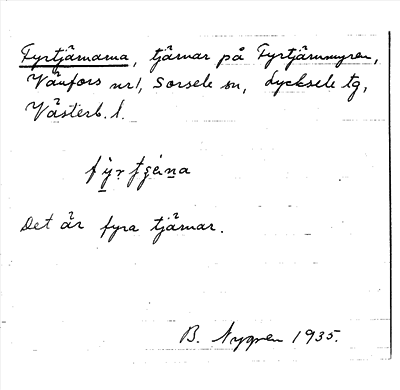 Fyrtjärnarna, tjärnar på Fyrtjärnmyren,
Vänfors nr 1, Sorsele sn, Lycksele tg,
Västerb. l.
Det är fyra tjärnar.
B. Nygren 1935.